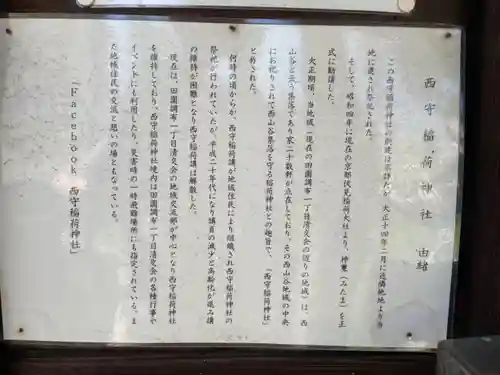 西守稲荷神社 由緒
この西守稲荷神社の創建は不詳だが、大正十四年二月に近隣他地より当
地に遷され祭祀された。
そして、昭和四年に現在の京都伏見稲荷大社より、神璽（みたま）を正
式に勧請した。
大正期頃、当地域（現在の田園調布一丁目清交会の辺りの地域）は、西
山谷と云う集落であり家二十数軒が点在しており、その西山谷地域の中央
にお祀りされて西山谷集落を守る稲荷神社との趣旨で、「西守稲荷神社」
と称された。
何時の頃からか、西守稲荷講が地域住民により組織され西守稲荷神社の
祭祀が行われていたが、平成二十年代になり講員の減少と高齢化が進み講
の維持が困難となり西守稲荷講は解散した。
現在は、田園調布一丁目清交会の地域交流部が中心となり西守稲荷神社
を維持しており、西守稲荷神社境内は田園調布一丁目清交会の各種行事や
イベントにも利用したり、災害時の一時避難場所にも指定されている。ま
た地域住民の交流と憩いの場ともなっている。
「Facebook 西守稲荷神社」